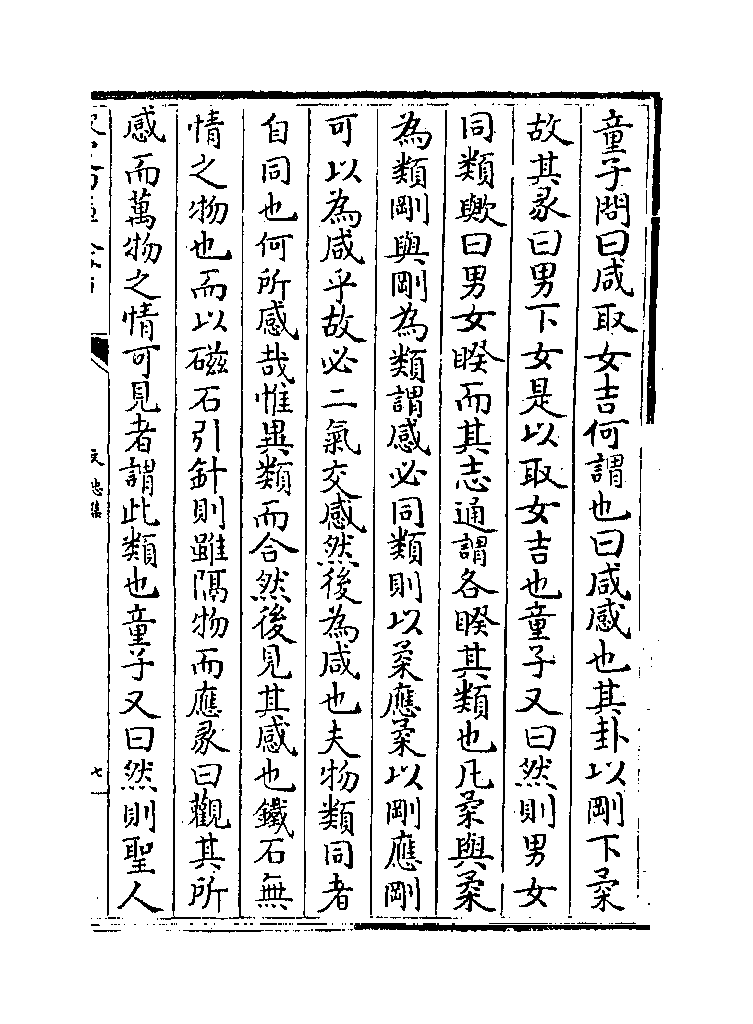 童子問曰咸取女吉何謂也曰咸感也其卦以剛下柔
故其彖曰男下女是以取女吉也童子又曰然則男女
同類歟曰男女睽而其志通謂各睽其類也凡柔與柔
為類剛與剛為類謂感必同類則以柔應柔以剛應剛
可以為咸乎故必二氣交感然後為咸也夫物類同者
自同也何所感哉惟異類而合然後見其感也鐵石無
情之物也而以磁石引針則雖隔物而應彖曰觀其所
感而萬物之情可見者謂此類也童子又曰然則聖人
文忠集
七